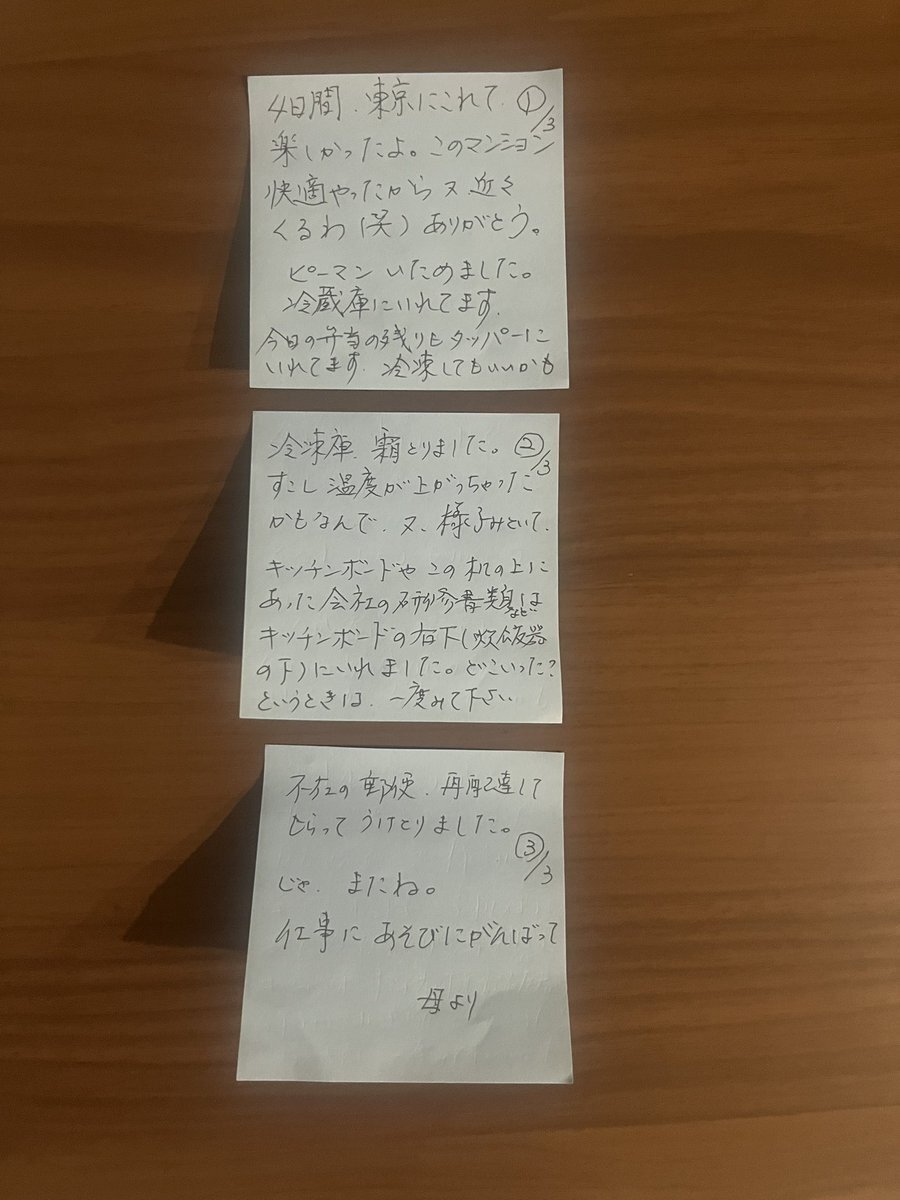 4日間、東京にこれて、 ①/3
楽しかったよ。このマンション
快適やったから又近々
くるわ(笑)ありがとう。
ピーマンいためました。
冷蔵庫にいれてます。
今日の弁当の残りもタッパーに
いれてます。冷凍してもいいかも
冷凍庫、霜とりました。 ②/3
すこし温度が上がっちゃった
かもなんで、又、様子みといて、
キッチンボードやこの机の上に
あった会社の研修書類などは
キッチンボードの右下(炊飯器
の下)にいれました。どこいった?
というときは、一度みて下さい
不在の郵便、再配達して
もらってうけとりました。
③/3
じゃ、またね。
仕事にあそびにがんばって
母より